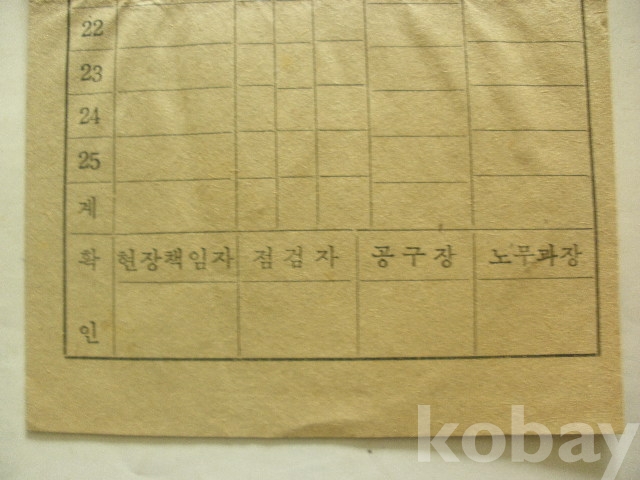 22
23
24
25
계
확인 현장책임자 점검자 공구장 노무과장
kobay